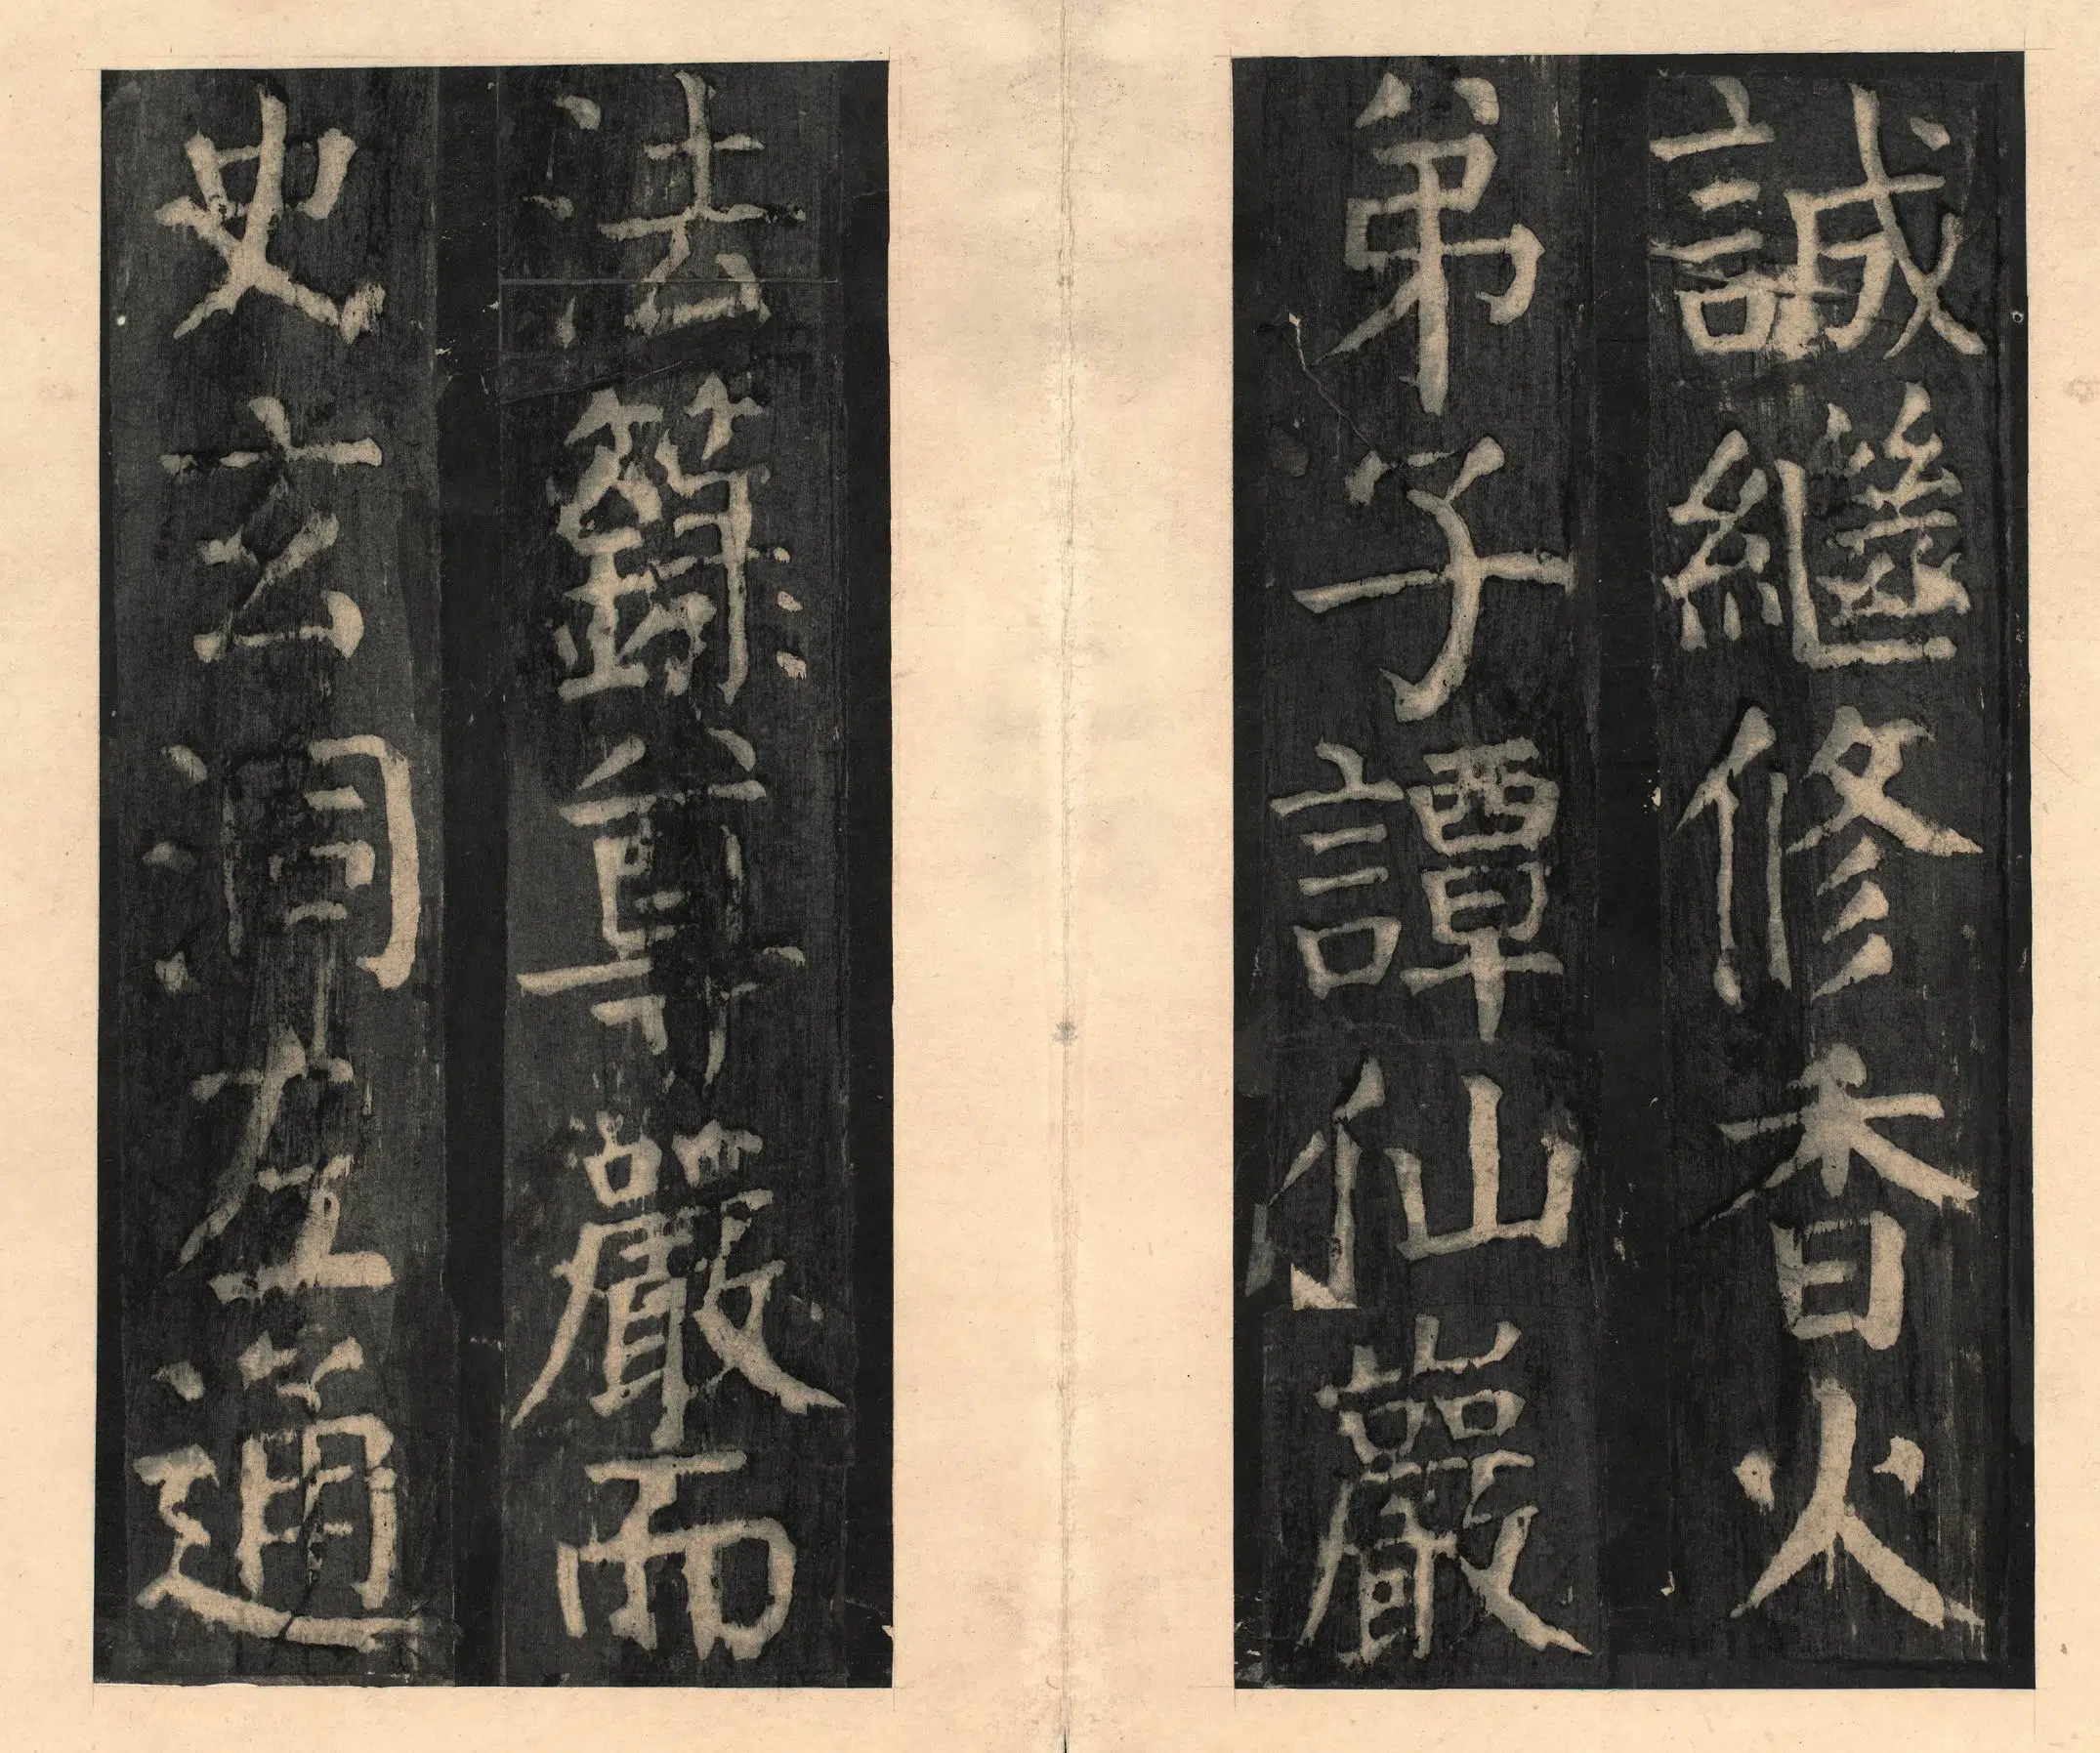 誠繼修香火
弟子譚仙巖
法籙尊嚴而
史玄洞左通